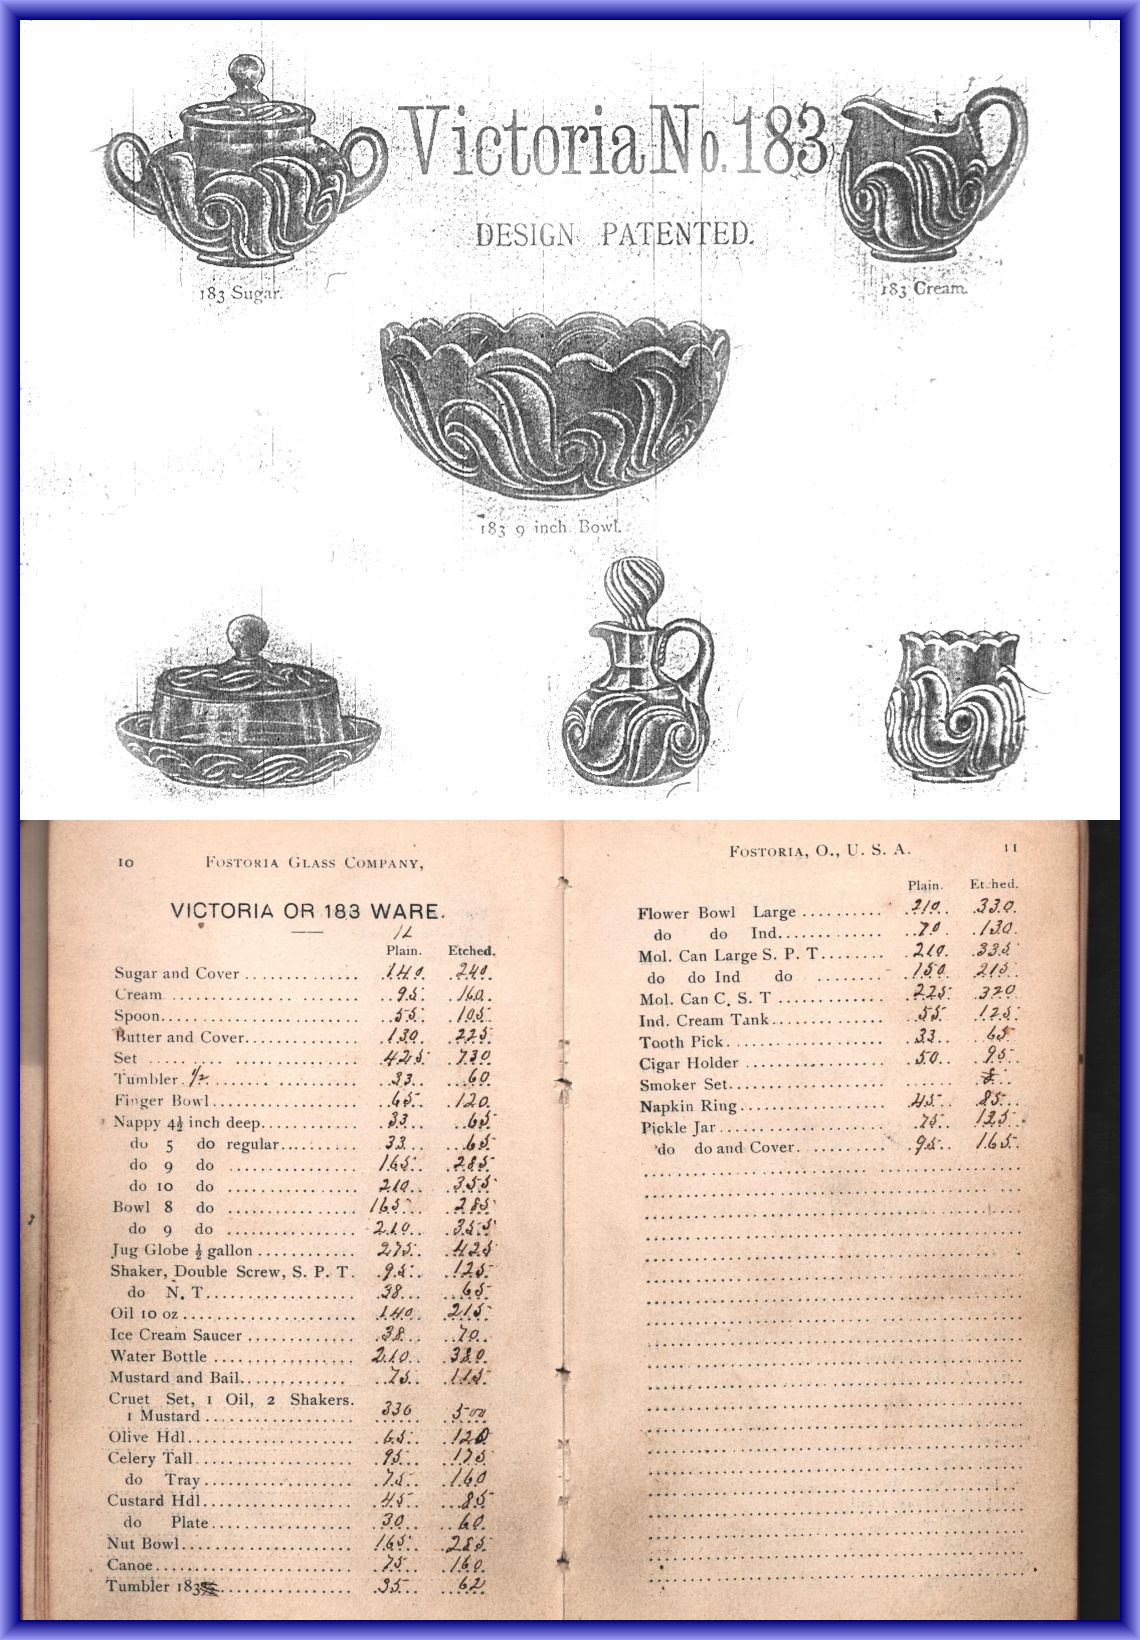 Victoria No. 183
DESIGN PATENTED.
183 Sugar.
183 Cream.
183 9 inch Bowl.
10 FOSTORIA GLASS COMPANY,
VICTORIA OR 183 WARE.
Plain. Etched.
Sugar and Cover 140 240
Cream 95 160
Spoon 55 105
Butter and Cover 130 225
Set 425 730
Tumbler 1/2 33 60
Finger Bowl 65 120
Nappy 4½ inch deep 33 65
do 5 do regular 33 65
do 9 do 165 285
do 10 do 210 355
Bowl 8 do 165 285
do 9 do 210 355
Jug Globe ½ gallon 275 425
Shaker, Double Screw, S. P. T. 95 125
do N. T. 38 65
Oil 10 oz 140 215
Ice Cream Saucer 38 70
Water Bottle 210 380
Mustard and Bail 75 115
Cruet Set, 1 Oil, 2 Shakers.
1 Mustard 330 500
Olive Hdl 65 120
Celery Tall 95 175
do Tray 75 160
Custard Hdl 45 85
do Plate 30 60
Nut Bowl 165 285
Canoe 75 160
Tumbler 183 35 62
FOSTORIA, O., U. S. A. 11
Plain. Etched.
Flower Bowl Large 210 330
do do Ind 70 130
Mol. Can Large S. P. T 210 335
do do Ind do 150 215
Mol. Can C. S. T 225 320
Ind. Cream Tank 55 125
Tooth Pick 33 65
Cigar Holder 50 95
Smoker Set
Napkin Ring 45 85
Pickle Jar 75 135
do do and Cover 95 165